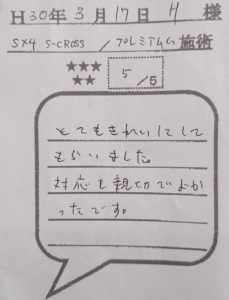 H30年3月17日 H 様
SX4 S-CROSS / プレミアム 施術
★★★
★★
5 /5
とてもきれいにして
もらいました。
対応も親切でよか
ったです。